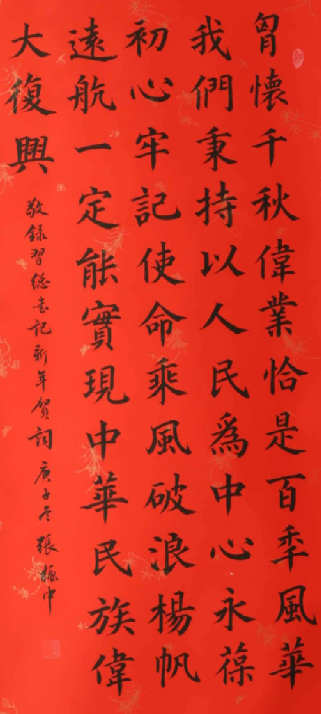 胷懷千秋偉業恰是百年風華
我們秉持以人民爲中心永葆
初心牢記使命乘風破浪楊帆
遠航一定能實現中華民族偉
大復興
敬録習總書記新年賀詞庚子冬張振中